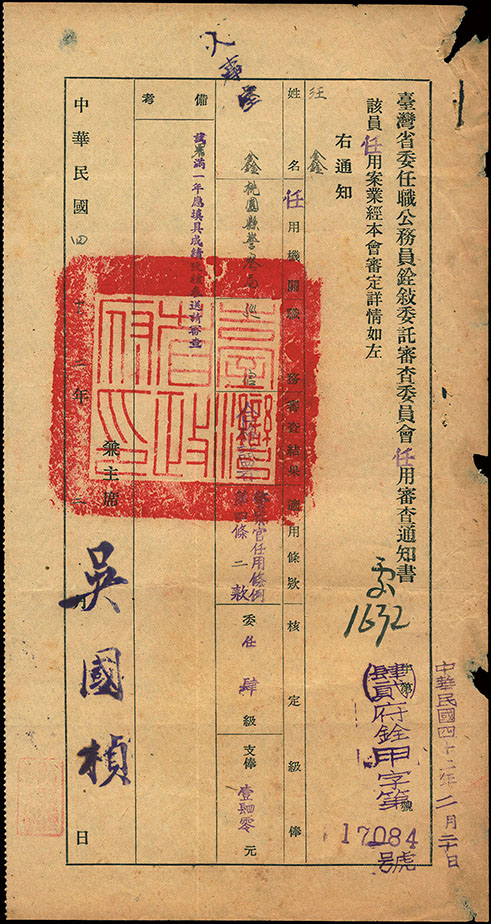 臺灣省委任職公務員銓敍委託審查委員會任用審查通知書
中華民國四十二年二月二十日
貳府銓甲字第17084號
1632
該員任用案業經本會審定詳情如左
右通知
汪鑫
姓名
任用機關職務
審查結果
適用條款
核定級俸
鑫
桃園縣警察局巡官
警察官任用條例
第四條二款
委任肆級
支俸壹肆零元
備考
試署滿一年應填具成績
送請審查
臺灣省政府印
中華民國四十二年二月日
兼主席
吳國楨